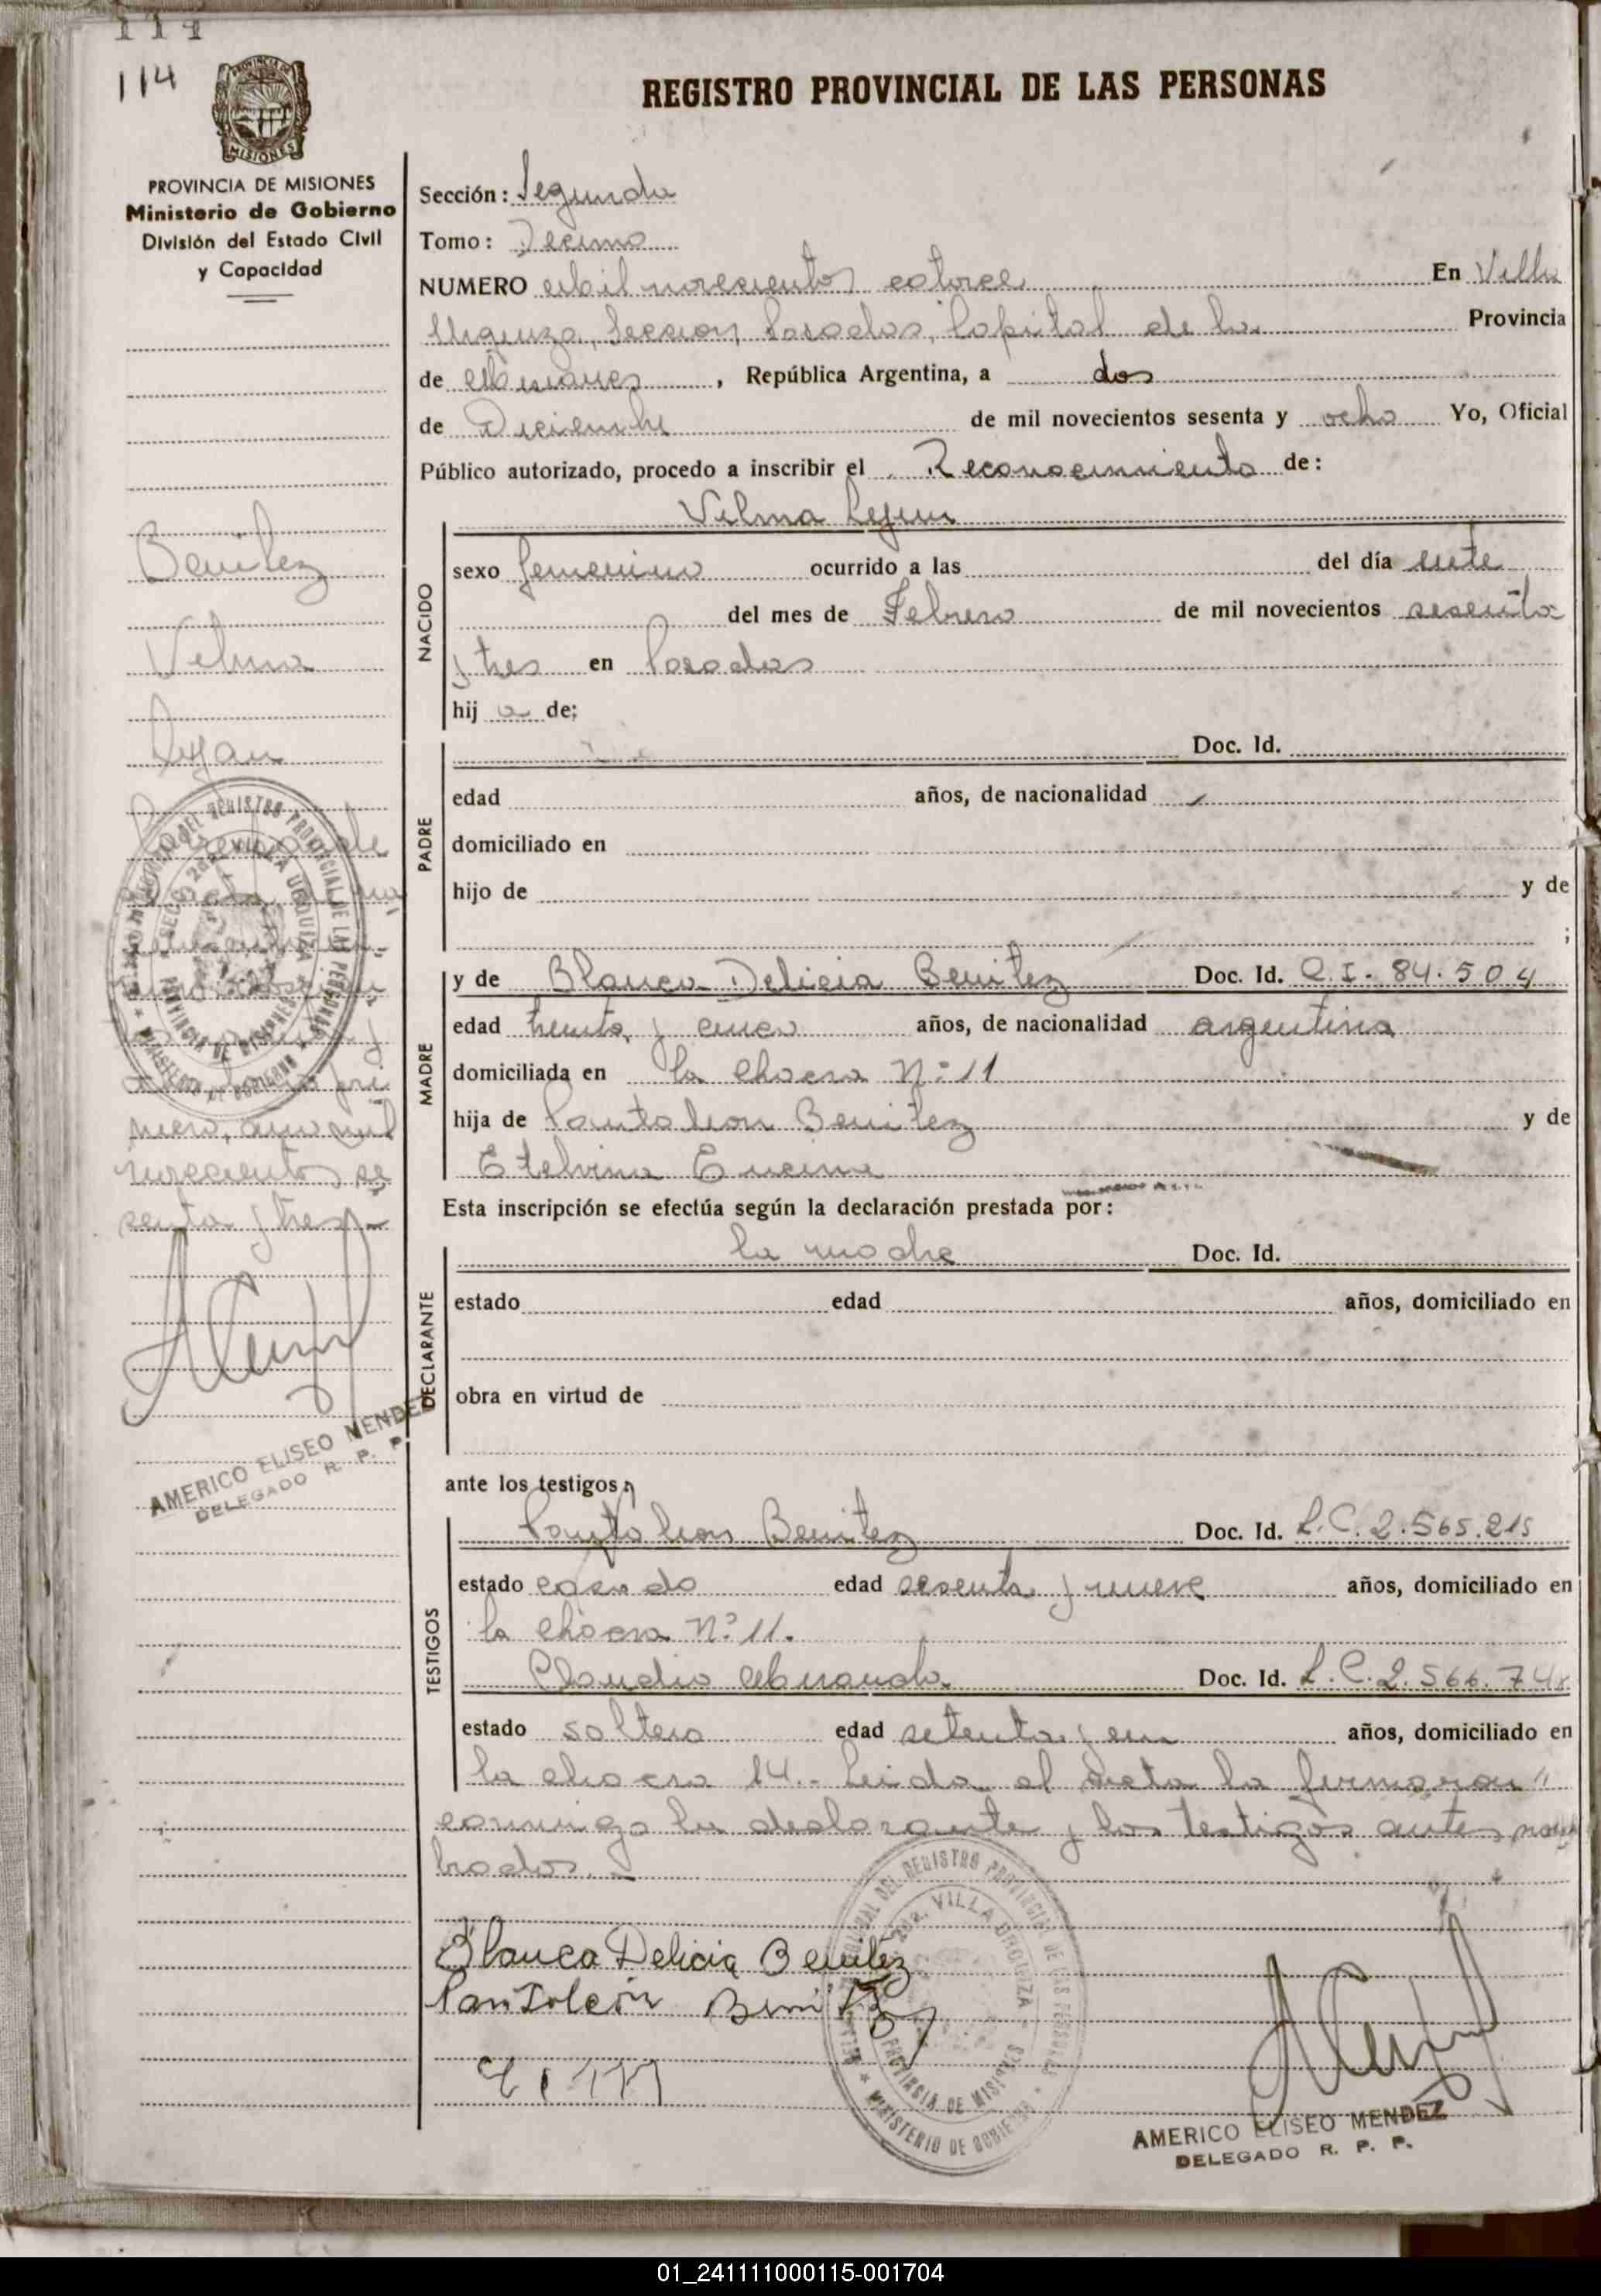 114
114
REGISTRO PROVINCIAL DE LAS PERSONAS
PROVINCIA DE MISIONES
Ministerio de Gobierno
División del Estado Civil
y Capacidad
Sección: Segunda
Tomo: Decimo
NUMERO Mil novecientos catorce En Villa
Urquiza, Seccion Posadas, Capital de la Provincia
de Misiones, República Argentina, a dos
de Diciembre de mil novecientos sesenta y ocho Yo, Oficial
Público autorizado, procedo a inscribir el Reconocimiento de:
Vilma
NACIDO
sexo femenino ocurrido a las del día siete
del mes de Febrero de mil novecientos sesenta
y tres en Posadas
hij a de:
PADRE
Doc. Id.
edad años, de nacionalidad
domiciliado en
hijo de y de
;
MADRE
y de Blanca Delicia Benitez Doc. Id. C.I. 84.504
edad treinta y cinco años, de nacionalidad argentina
domiciliada en la chacra Nº 11
hija de Pantaleon Benitez y de
Etelvina
Esta inscripción se efectúa según la declaración prestada por:
DECLARANTE
la madre Doc. Id.
estado edad años, domiciliado en
obra en virtud de
ante los testigos:
TESTIGOS
Pantaleon Benitez Doc. Id. L.C. 2.565.215
estado casado edad sesenta y nueve años, domiciliado en
la chacra Nº 11.
Claudio Miranda. Doc. Id. L.C. 2.566.74
estado soltero edad setenta y un años, domiciliado en
la chacra 14.- Leida el acta la firmaron
conmigo la declarante y los testigos antes nom
brados.
Blanca Delicia Benitez
Pantoleón Benitez
AMERICO ELISEO MENDEZ
DELEGADO R. P. P.
Benitez
Vilma
mero, año mil
novecientos se
senta y tres
AMERICO ELISEO MENDEZ
DELEGADO R. P. P.
01_241111000115-001704